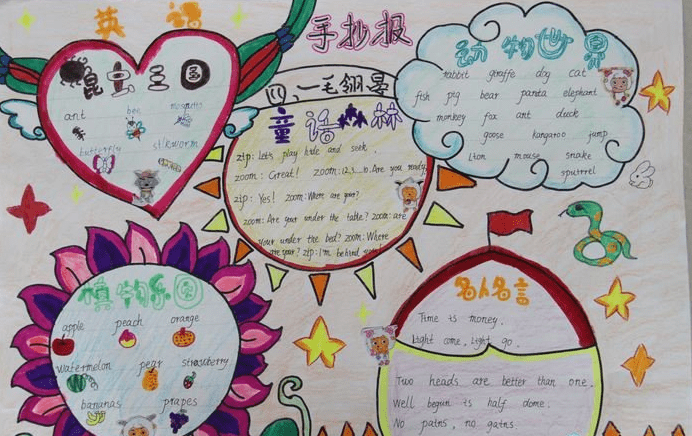 英语
手抄报
昆虫王国
ant bee mosquito
butterfly silkworm
童话森林
zip: Let's play hide and seek.
zoom: Great! zoom: 1.2.3...10. Are you ready
zip: Yes! zoom: Where are your?
zoom: Are your under the table? zoom: are
your under the bed? zoom: Where
are your? zip: I'm behind
动物世界
rabbit giraffe dog cat
fish pig bear panta elephant
monkey fox ant duck
goose kangaroo jump
Lion mouse snake
squirrel
植物乐园
apple peach orange
watermelon pear strawberry
bananas grapes
名人名言
Time is money.
Light come, Light go.
Two heads are better than one.
Well begun is half done.
No pains, no gains